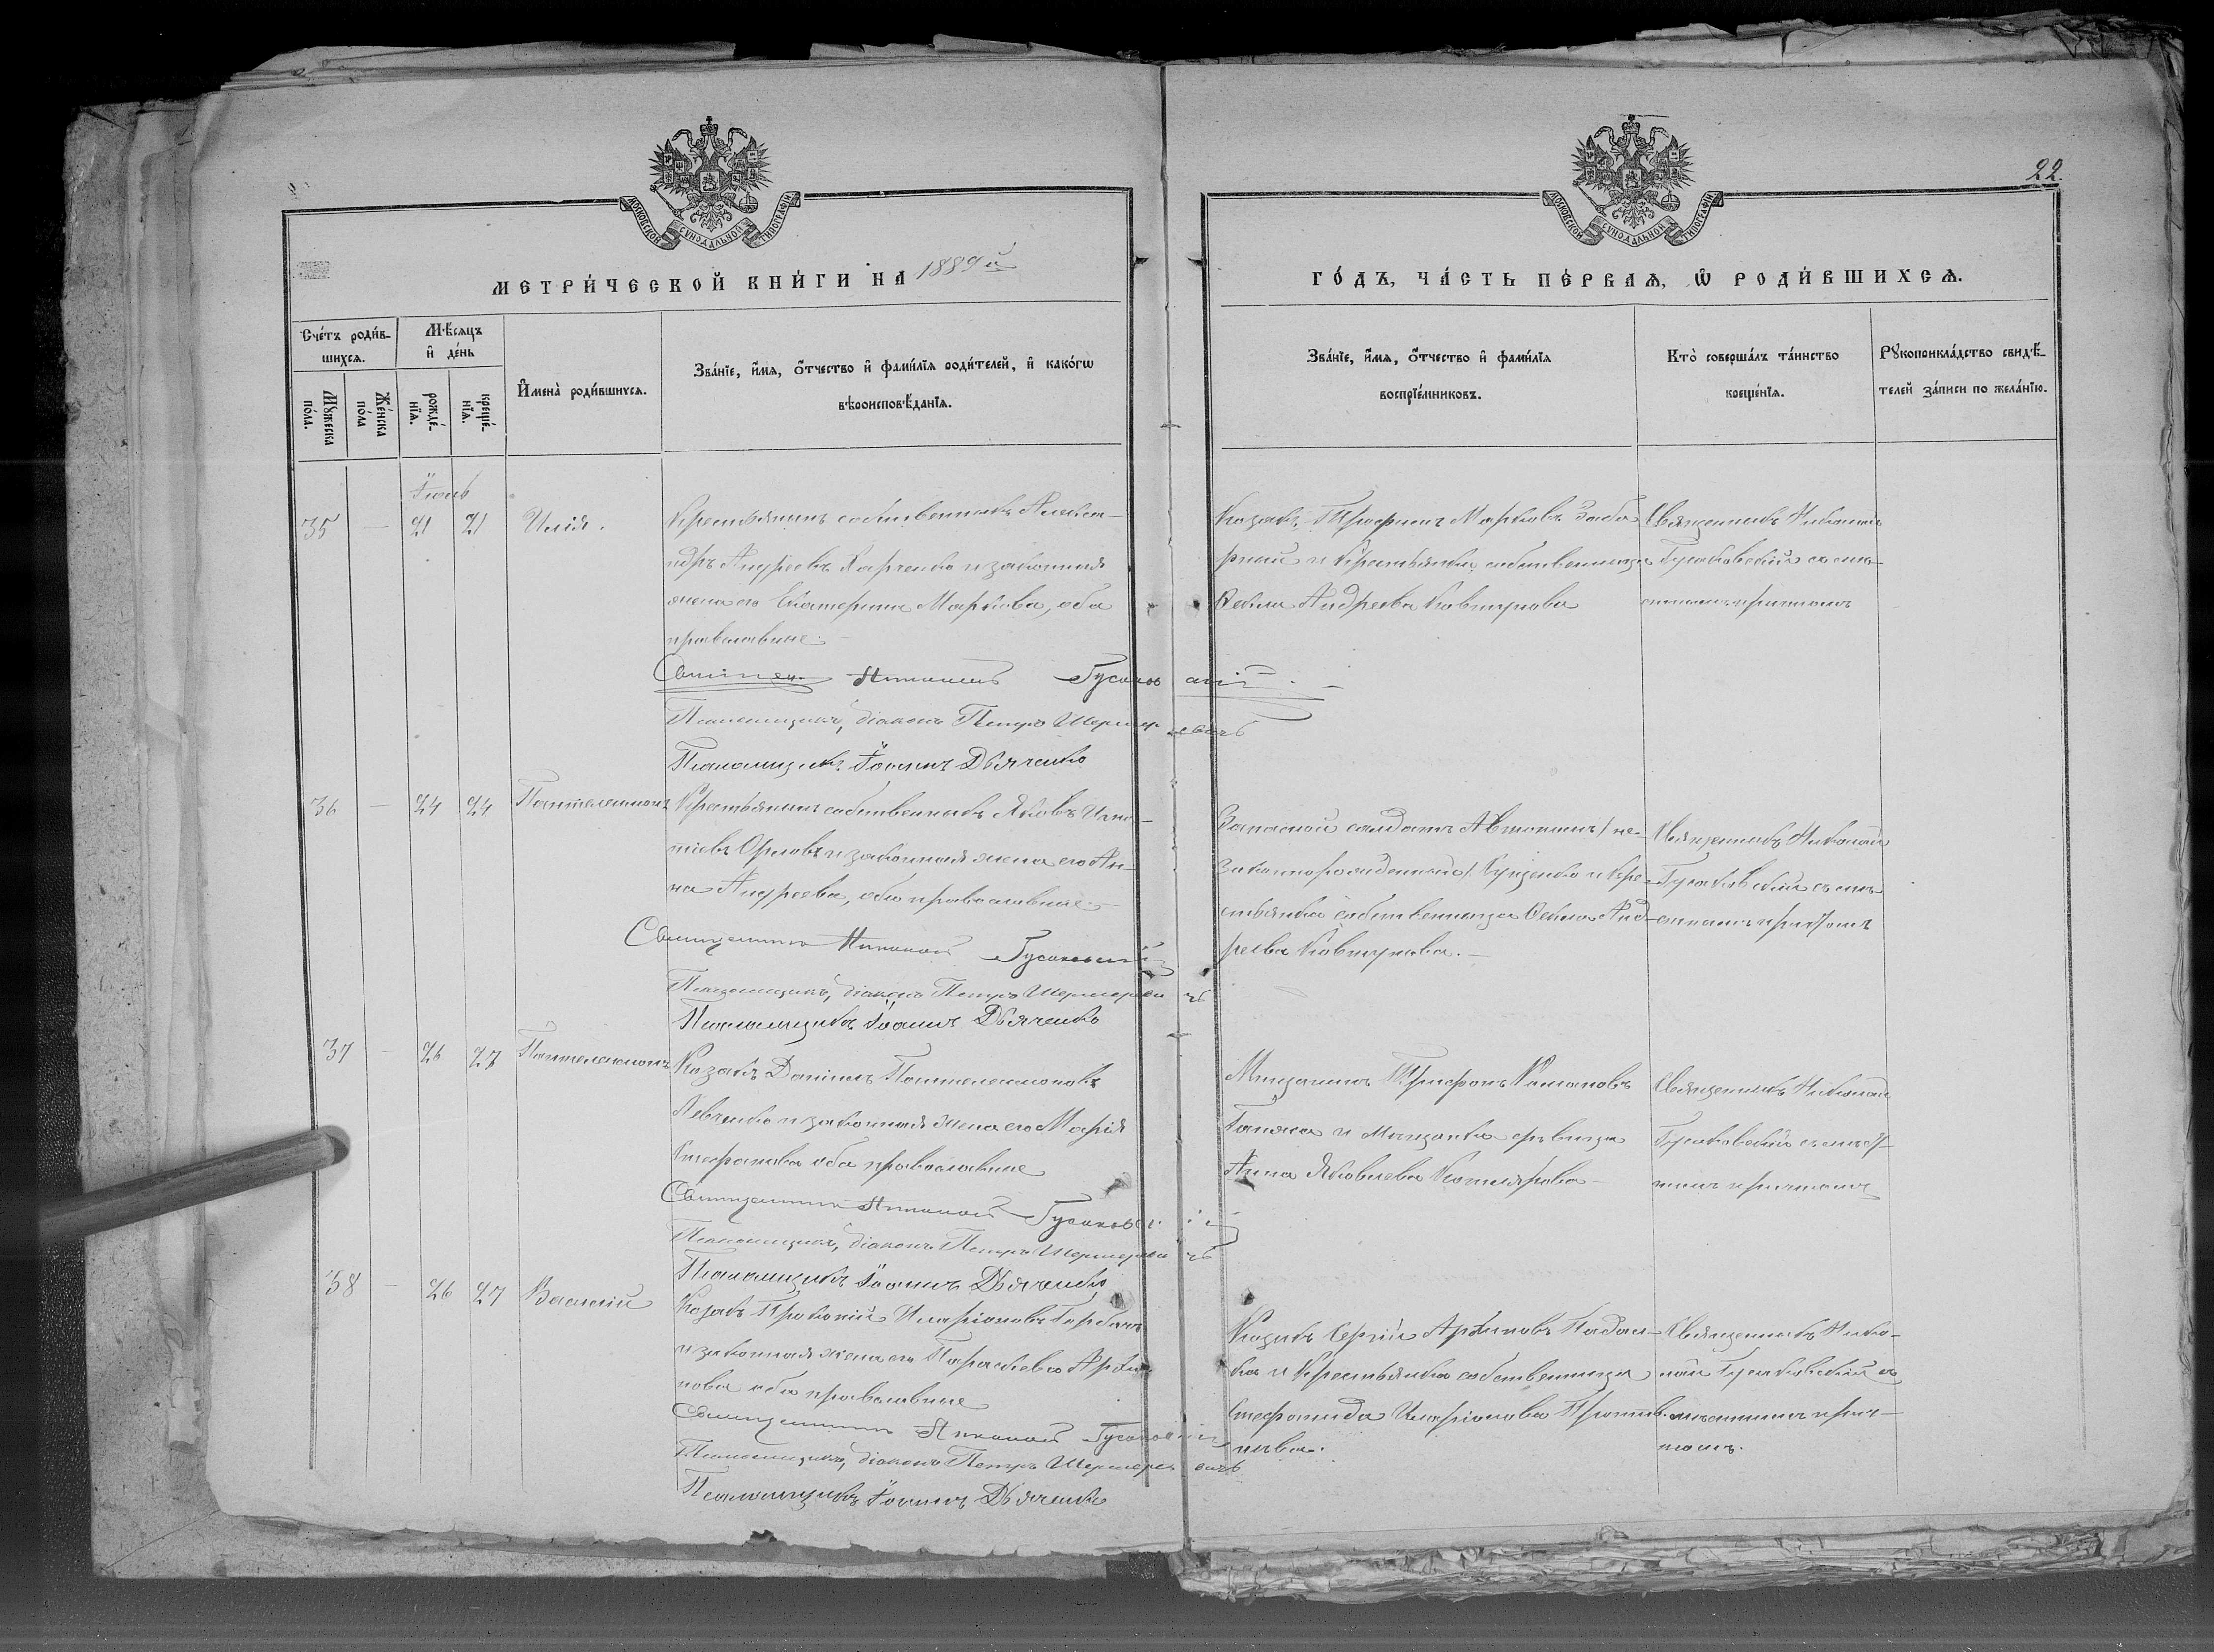 22.
МОСКОВСКОЙ СѴНОДАЛЬНОЙ ТИПОГРАФІИ
МОСКОВСКОЙ СѴНОДАЛЬНОЙ ТИПОГРАФІИ
МЕТРИ́ЧЕСКОЙ КНИ́ГИ НА 1889й
ГО́ДЪ, ЧА́СТЬ ПЕ́РВАѦ, Ѡ҆ РОДИ́ВШИХСѦ.
Сче́тъ роди́в-
шихсѧ.
Мꙋ́жеска по́ла.
Же́нска по́ла
Мѣ́сѧцъ
и҆ де́нь
рожде́-нїѧ.
креще́-нїѧ.
И҆мена̀ роди́вшихсѧ.
Зва́нїе, и҆́мѧ, ѻ҆́тчество и҆ фами́лїѧ роди́телей, и҆ како́гѡ
вѣроисповѣ́данїѧ.
Зва́нїе, и҆́мѧ, ѻ҆́тчество и҆ фами́лїѧ
воспрїе́мниковъ.
Кто̀ соверша́лъ та́инство
креще́нїѧ.
Рꙋкоприкла́дство свидѣ́-
телей за́писи по жела́нїю.
Іюль
35 — 21 21 Илія.
Крестьянинъ собственникъ Алекса-
ндръ Андреевъ Харченко и законная
жена его Екатерина Маркова, оба
православные.
Священ. Николай Гусаковскій
Псаломщикъ, діаконъ Петръ
Псаломщикъ Іоаннъ Дьяченко
Козакъ Трофимъ Марковъ
и крестьянка собственница
Ѳекла Андреева Ковтунова
Священникъ Николай
Гусаковскій съ мѣ-
стнымъ причтомъ
36 — 24 24 Пантелеимонъ
Крестьянинъ собственникъ Яковъ Игна-
тіевъ Орловъ и законная жена его Ан-
на Андреева, оба православные.
Священникъ Николай Гусаковскій
Псаломщикъ, діаконъ Петръ
Псаломщикъ Іоаннъ Дьяченко
Запасной солдатъ Автономъ (не-
законнорожденный) Куценко и кре-
стьянка собственница Ѳекла Анд-
реева Ковтунова.
Священникъ Николай
Гусаковскій съ мѣ-
стнымъ причтомъ
37 — 26 27 Пантелеимонъ
Козакъ Даніилъ Пантелеимоновъ
Левченко и законная жена его Марія
Стефанова оба православные
Священникъ Николай Гусаковскій
Псаломщикъ, діаконъ Петръ
Псаломщикъ Іоаннъ Дьяченко
Мѣщанинъ Трифонъ
и мѣщанка дѣвица
Анна Яковлева Котлярова
Священникъ Николай
Гусаковскій съ мѣст-
нымъ причтомъ
38 — 26 27 Василій
Козакъ Прокопій Иларіоновъ Горбань
и законная жена его Параскева Архи-
пова оба православные
Священникъ Николай Гусаковскій
Псаломщикъ, діаконъ Петръ
Псаломщикъ Іоаннъ Дьяченко
Козакъ Сергій Архиповъ
и крестьянка собственница
Стефанида Иларіонова
Священникъ Нико-
лай Гусаковскій съ
мѣстнымъ прич-
томъ.